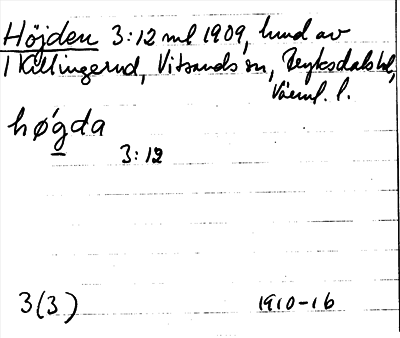 Höjden 3:12 mtl 1909, hund av
1 Killingerud, Vitsands sn, Fryksdals hd,
Värml. l.
høgda
3:12
3(3)
1910-16